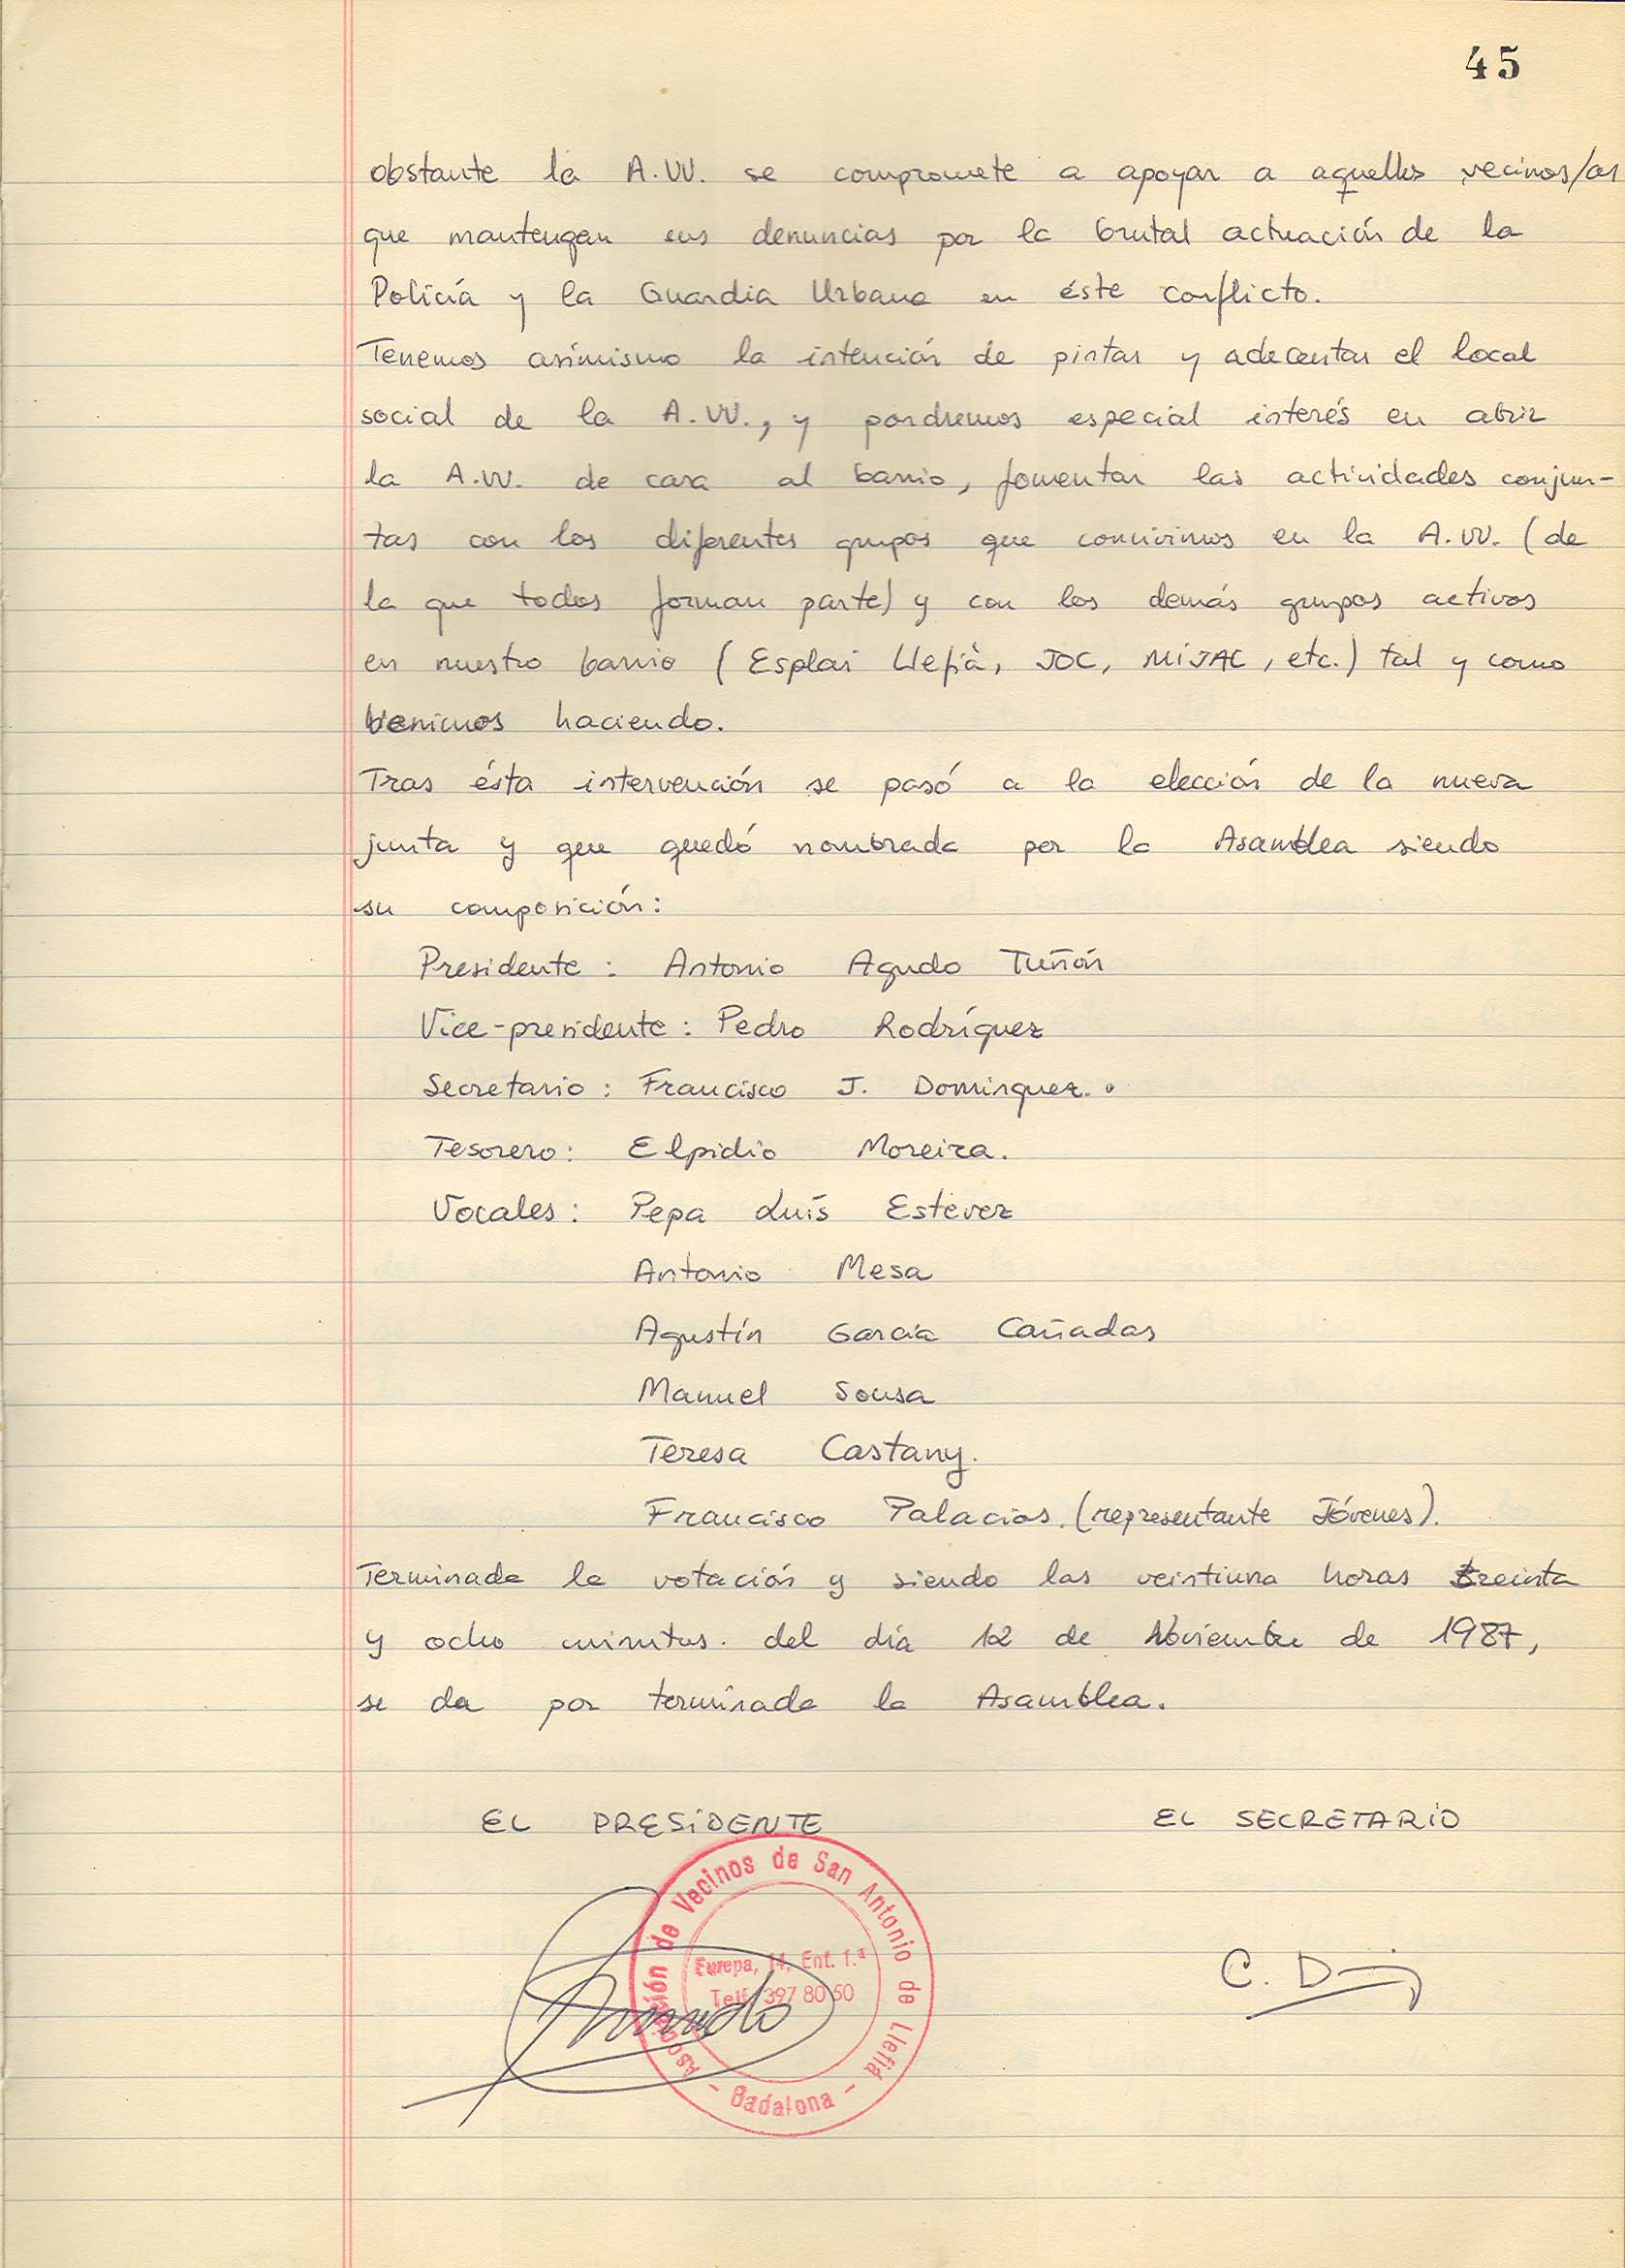 45
obstante la A.VV. se compromete a apoyar a aquellos vecinos/as
que mantengan sus denuncias por la brutal actuación de la
Policía y la Guardia Urbana en éste conflicto.
Tenemos asímismo la intención de pintar y adecentar el local
social de la A.VV., y pondremos especial interés en abrir
la A.VV. de cara al barrio, fomentar las actividades conjun-
tas con los diferentes grupos que convivimos en la A.VV. (de
la que todos forman parte) y con los demás grupos activos
en nuestro barrio (Esplai Llefià, JOC, MIJAC, etc.) tal y como
venimos haciendo.
Tras ésta intervención se pasó a la elección de la nueva
junta y que quedó nombrada por la Asamblea siendo
su composición:
Presidente: Antonio Agudo Tuñón
Vice-presidente: Pedro Rodríguez
Secretario: Francisco J. Dominguez.
Tesorero: Elpidio Moreira.
Vocales: Pepa Luís Estevez
Antonio Mesa
Agustín García Cañadas
Manuel Sousa
Teresa Castany.
Francisco Palacios. (representante Jóvenes).
Terminada la votación y siendo las veintiuna horas treinta
y ocho minutos. del día 12 de Noviembre de 1987,
se da por terminada la Asamblea.
EL PRESIDENTE EL SECRETARIO
Asociación de Vecinos de San Antonio de Llefiá
Europa, 14, Ent. 1.ª
Telf. 397 80 50
- Badalona -
C. D